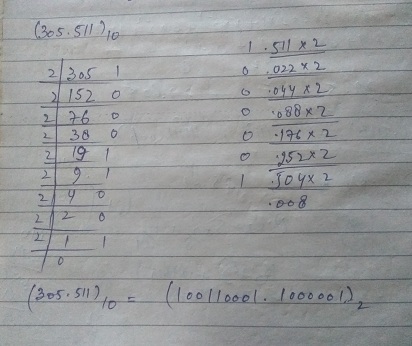 (305.511)10
1 .511 × 2
2 305 1
0 .022 × 2
2 152 0
0 .044 × 2
2 76 0
0 .088 × 2
2 38 0
0 .176 × 2
2 19 1
0 .252 × 2
2 9 1
1 .504 × 2
2 4 0
.008
2 2 0
2 1 1
0
(305.511)10 = (100110001.1000001)2